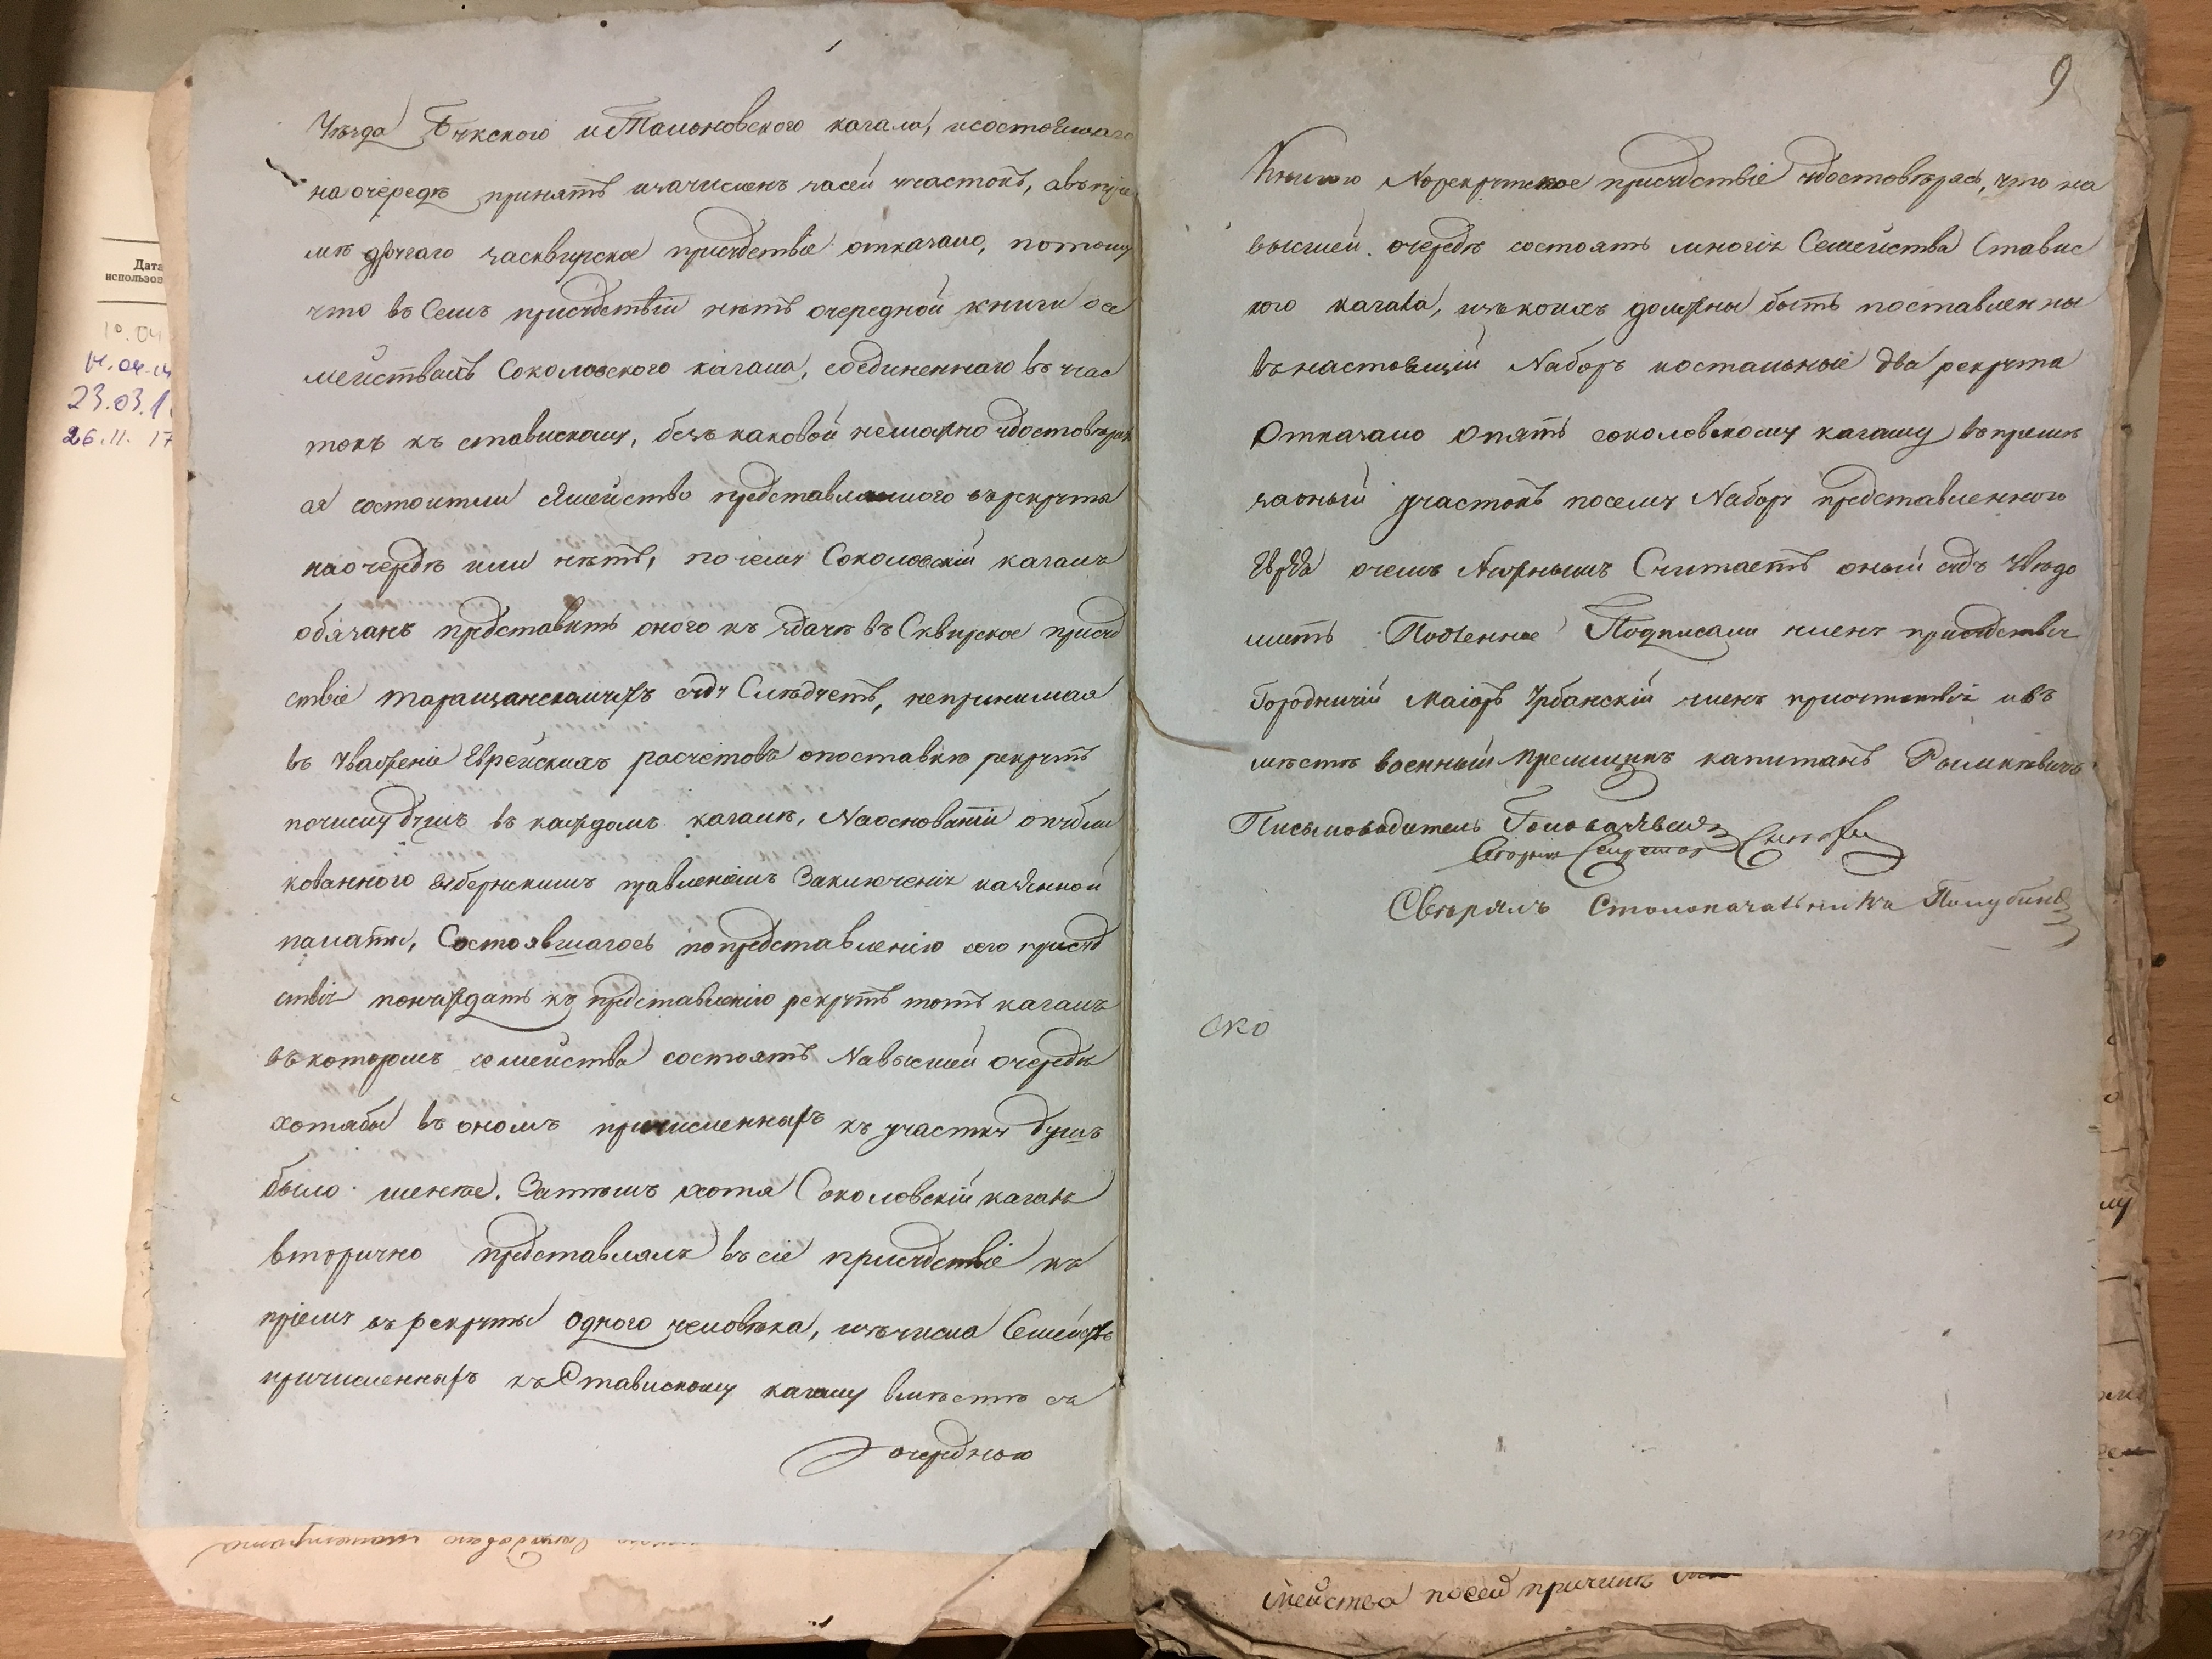 Уѣзда Бужского и Тальновского кагала, исостоящаго
на очередѣ принятъ изачисленъ засей участокъ, авъпріе
мѣ другаго засквирское присудствіе отказано, потому
что въ семъ присудствіи нѣтъ очередной книги осе
мействахъ Соколовского кагала, соединеннаго въ учас
токъ къ ставискому, безъ каковой неможно удостовѣрит
ся состоитли семейство представляемого въ рекруты
наочердѣ или нѣтъ, почему Соколовскій кагалъ
обязанъ представить оного къ здачѣ въ Сквирское присуд
ствіе таращанскомужъ суду Слѣдуетъ, непринимая
въ уваженіе Еврейскихъ расчетовъ опоставкѣ рекрутъ
почислу душъ въ каждомъ кагалѣ, Наоснованіи опубли
кованного Губернскимъ правленіемъ Заключенія казенной
палаты, Состоявшагось попредставленію сего присуд
ствія понуждать къ представленію рекрутъ тотъ кагалъ
въкоторомъ семейства состоятъ Навысшей очередѣ
хотябы въ ономъ причисленныхъ къ участку душъ
было менѣе. Затѣмъ хотя Соколовскій кагалъ
вторично представлялъ въ сіе присудствіе къ
пріему въ рекруты одного человѣка, изъчисла Семействъ
причисленныхъ къ Ставискому кагалу вмѣстѣ съ
очередною
9
Книгою Норекрутское присудствіе удостовѣрясь, что на
высшей очередѣ состоятъ многія Семейства Ставис
кого кагала, изъкоихъ должны быть поставленны
въ настоящій Наборъ иостальные два рекрута
Отказало опять соколовскому кагалу въпремѣ
засный участокъ посему Набору представленного
Еврея очемъ Нужнымъ Считаетъ оный судъ Увѣдо
мить Подленное Подписали членъ присудствія
Городничій Маіоръ Урбанскій членъ присутствія ивъ
мѣстѣ военный премщикъ капитанъ
Письмоводитель
Секретарь
Свѣрялъ Столоначальника
ско
мейства посей причинѣ
Дата
использов
10.04
14.04.14
23.03.1
26.11.17